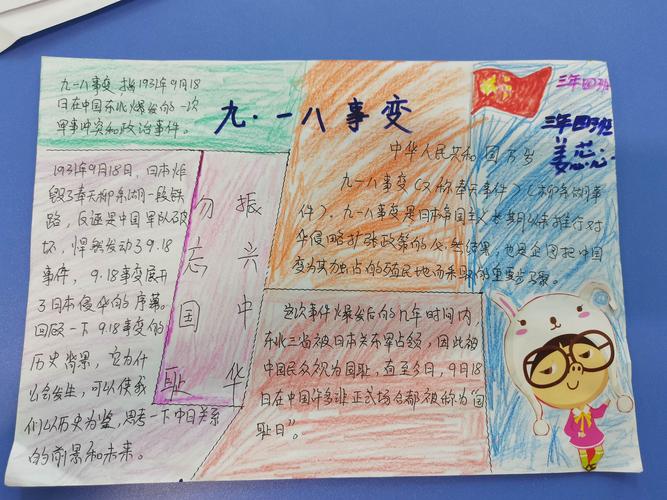 九·一八事变
三年四班
三年四班
姜蕊
九一八事变,指1931年9月18
日在中国东北爆发的一次
军事冲突和政治事件。
1931年9月18日,日本炸
毁了奉天柳条湖一段铁
路,反诬是中国军队破
坏,悍然发动了9.18
事件,9.18事变展开
了日本侵华的序幕。
回顾一下9.18事变的
历史背景,它为什
么会发生,可以使我
们以历史为鉴,思考一下中日关系
的前景和未来。
勿忘国耻
振兴中华
中华人民共和国万岁
九一八事变(又称奉天事件)(柳条湖事
件)。九一八事变是日本帝国主义长期以来推行对
华侵略扩张政策的必然结果,也是企图把中国
变为其独占的殖民地而采取的重要步骤。
这次事件爆发后的几年时间内,
东北三省被日本关东军占领,因此被
中国民众视为国耻,直至今日,9月18
日在中国许多非正式场合都被称为"国
耻日"。